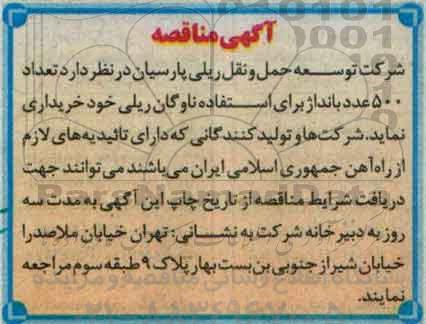 آگهی مناقصه
شرکت توسعه حمل و نقل ریلی پارسیان در نظر دارد تعداد
۵۰۰ عدد بانداژ برای استفاده ناوگان ریلی خود خریداری
نماید. شرکت‌ها و تولیدکنندگانی که دارای تائیدیه‌های لازم
از راه‌آهن جمهوری اسلامی ایران می‌باشند می‌توانند جهت
دریافت شرایط مناقصه از تاریخ چاپ این آگهی به مدت سه
روز به دبیرخانه شرکت به نشانی: تهران خیابان ملاصدرا
خیابان شیراز جنوبی بن‌بست بهار پلاک ۹ طبقه سوم مراجعه
نمایند.